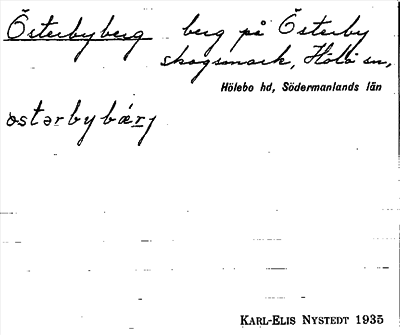 Österbyberg berg på Österby
skogsmark, Hölö sn,
Hölebo hd, Södermanlands län
østərbybǽrj
KARL-ELIS NYSTEDT 1935